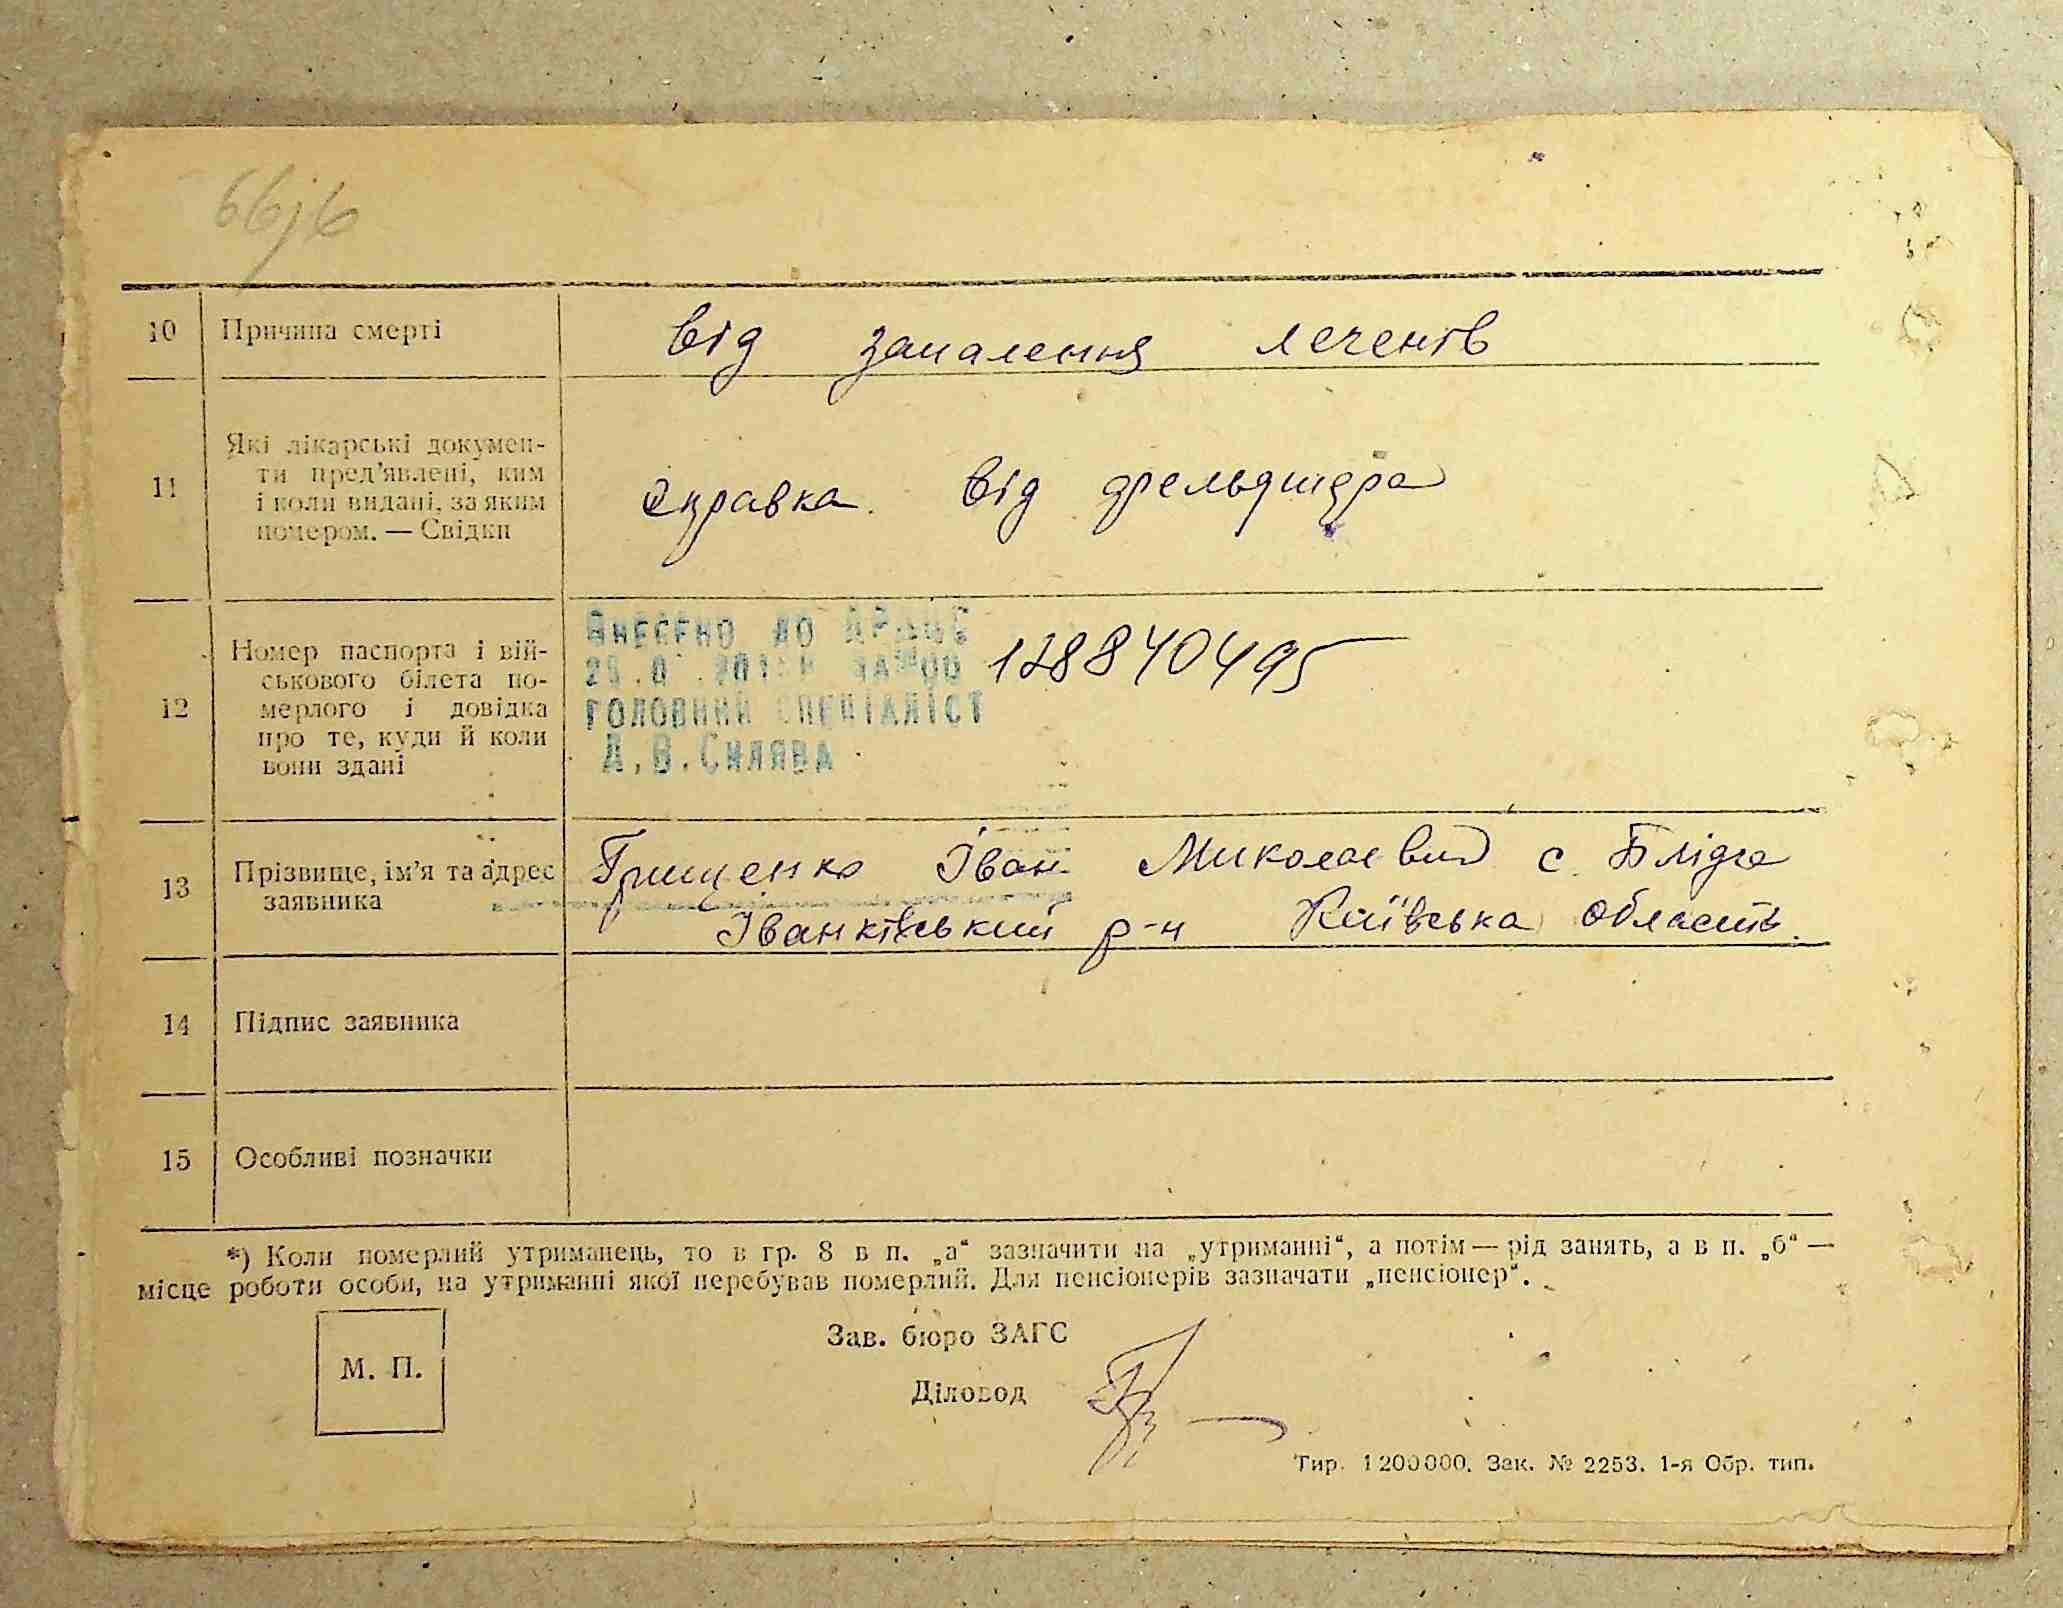 66 зв
10 Причина смерті від запалення легенів
11 Які лікарські документи
ти пред'явлені, ким
і коли видані, за яким
номером. — Свідки
справка від фельдшера
12 Номер паспорта і вій-
ськового білета по-
мерлого і довідка
про те, куди й коли
вони здані
Внесено до ДРАЦС
за №00 128840495
головний спеціаліст
А.В.Силява
13 Прізвище, ім'я та адрес
заявника
Грищенко Іван Миколаєвич с.Блідга
Іванківський р-н Київська область.
14 Підпис заявника
15 Особливі позначки
*) Коли померлий утриманець, то в гр. 8 в п. „а“ зазначити на „утриманні“, а потім — рід занять, а в п. „б“ —
місце роботи особи, на утриманні якої перебував померлий. Для пенсіонерів зазначати „пенсіонер“.
М. П.
Зав. бюро ЗАГС
Діловод
Тир. 1200000. Зак. № 2253. 1-я Обр. тип.